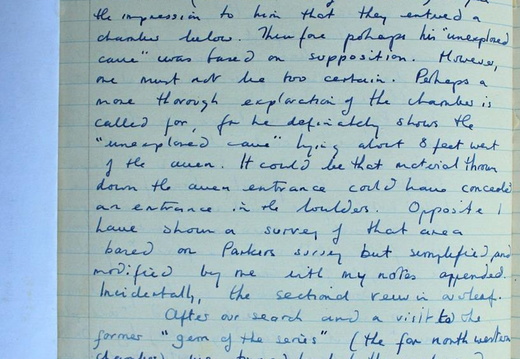 the impression to him that they entered a
chamber below. Therefore perhaps his "unexplored
cave" was based on supposition. However,
one must not be too certain. Perhaps a
more thorough exploration of the chamber is
called for, for he definitely shows the
"unexplored cave" lying about 8 feet west
of the aven. It could be that material thrown
down the aven entrance could have conceale
an entrance in the boulders. Opposite I
have shown a survey of that area
based on Parkers survey but simplified, and
modified by me with my notes appended.
Incidentally, the sectional view is overleaf.
After our search and a visit to the
former "gem of the series" (the far north western